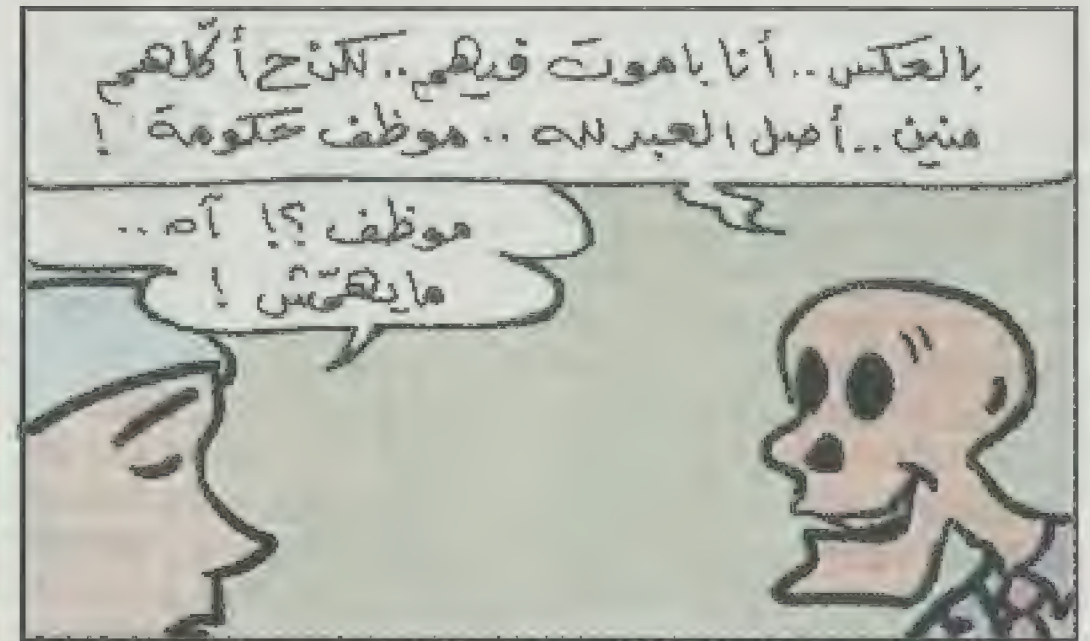 بالعكس.. أنا باموت فيهم.. لكن ح أكّلهم
منين.. أصل العبد لله.. موظف حكومة !
موظف ؟! آه..
ما يهمّش !